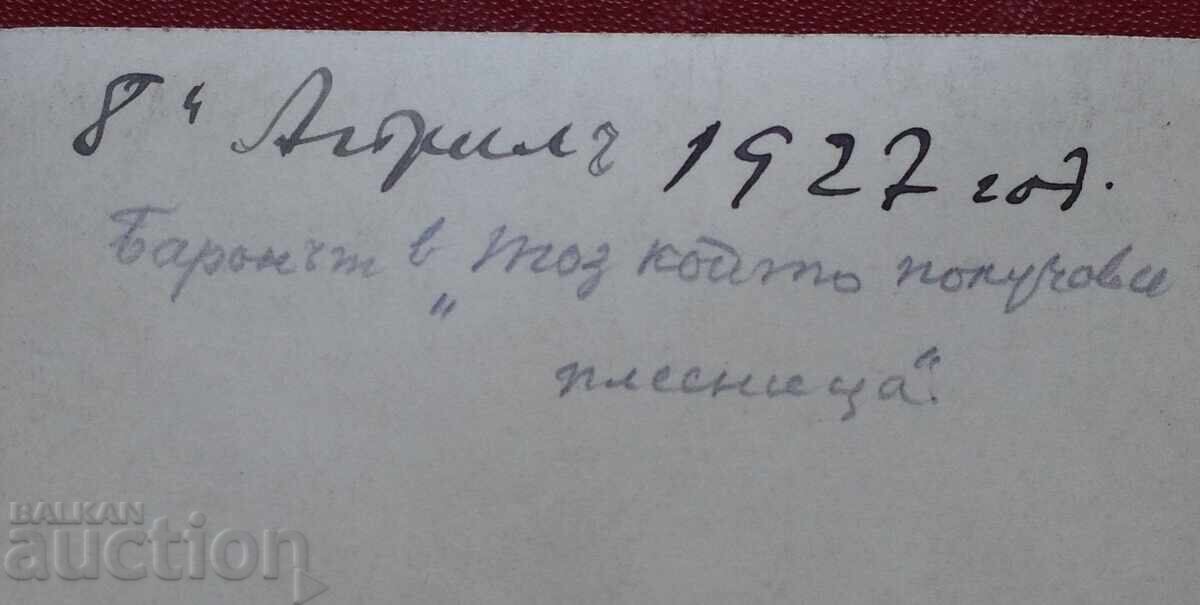 8" Априлъ 1927 год.
Баронът в „Тоз който получава
плесница“.
BALKAN
auction